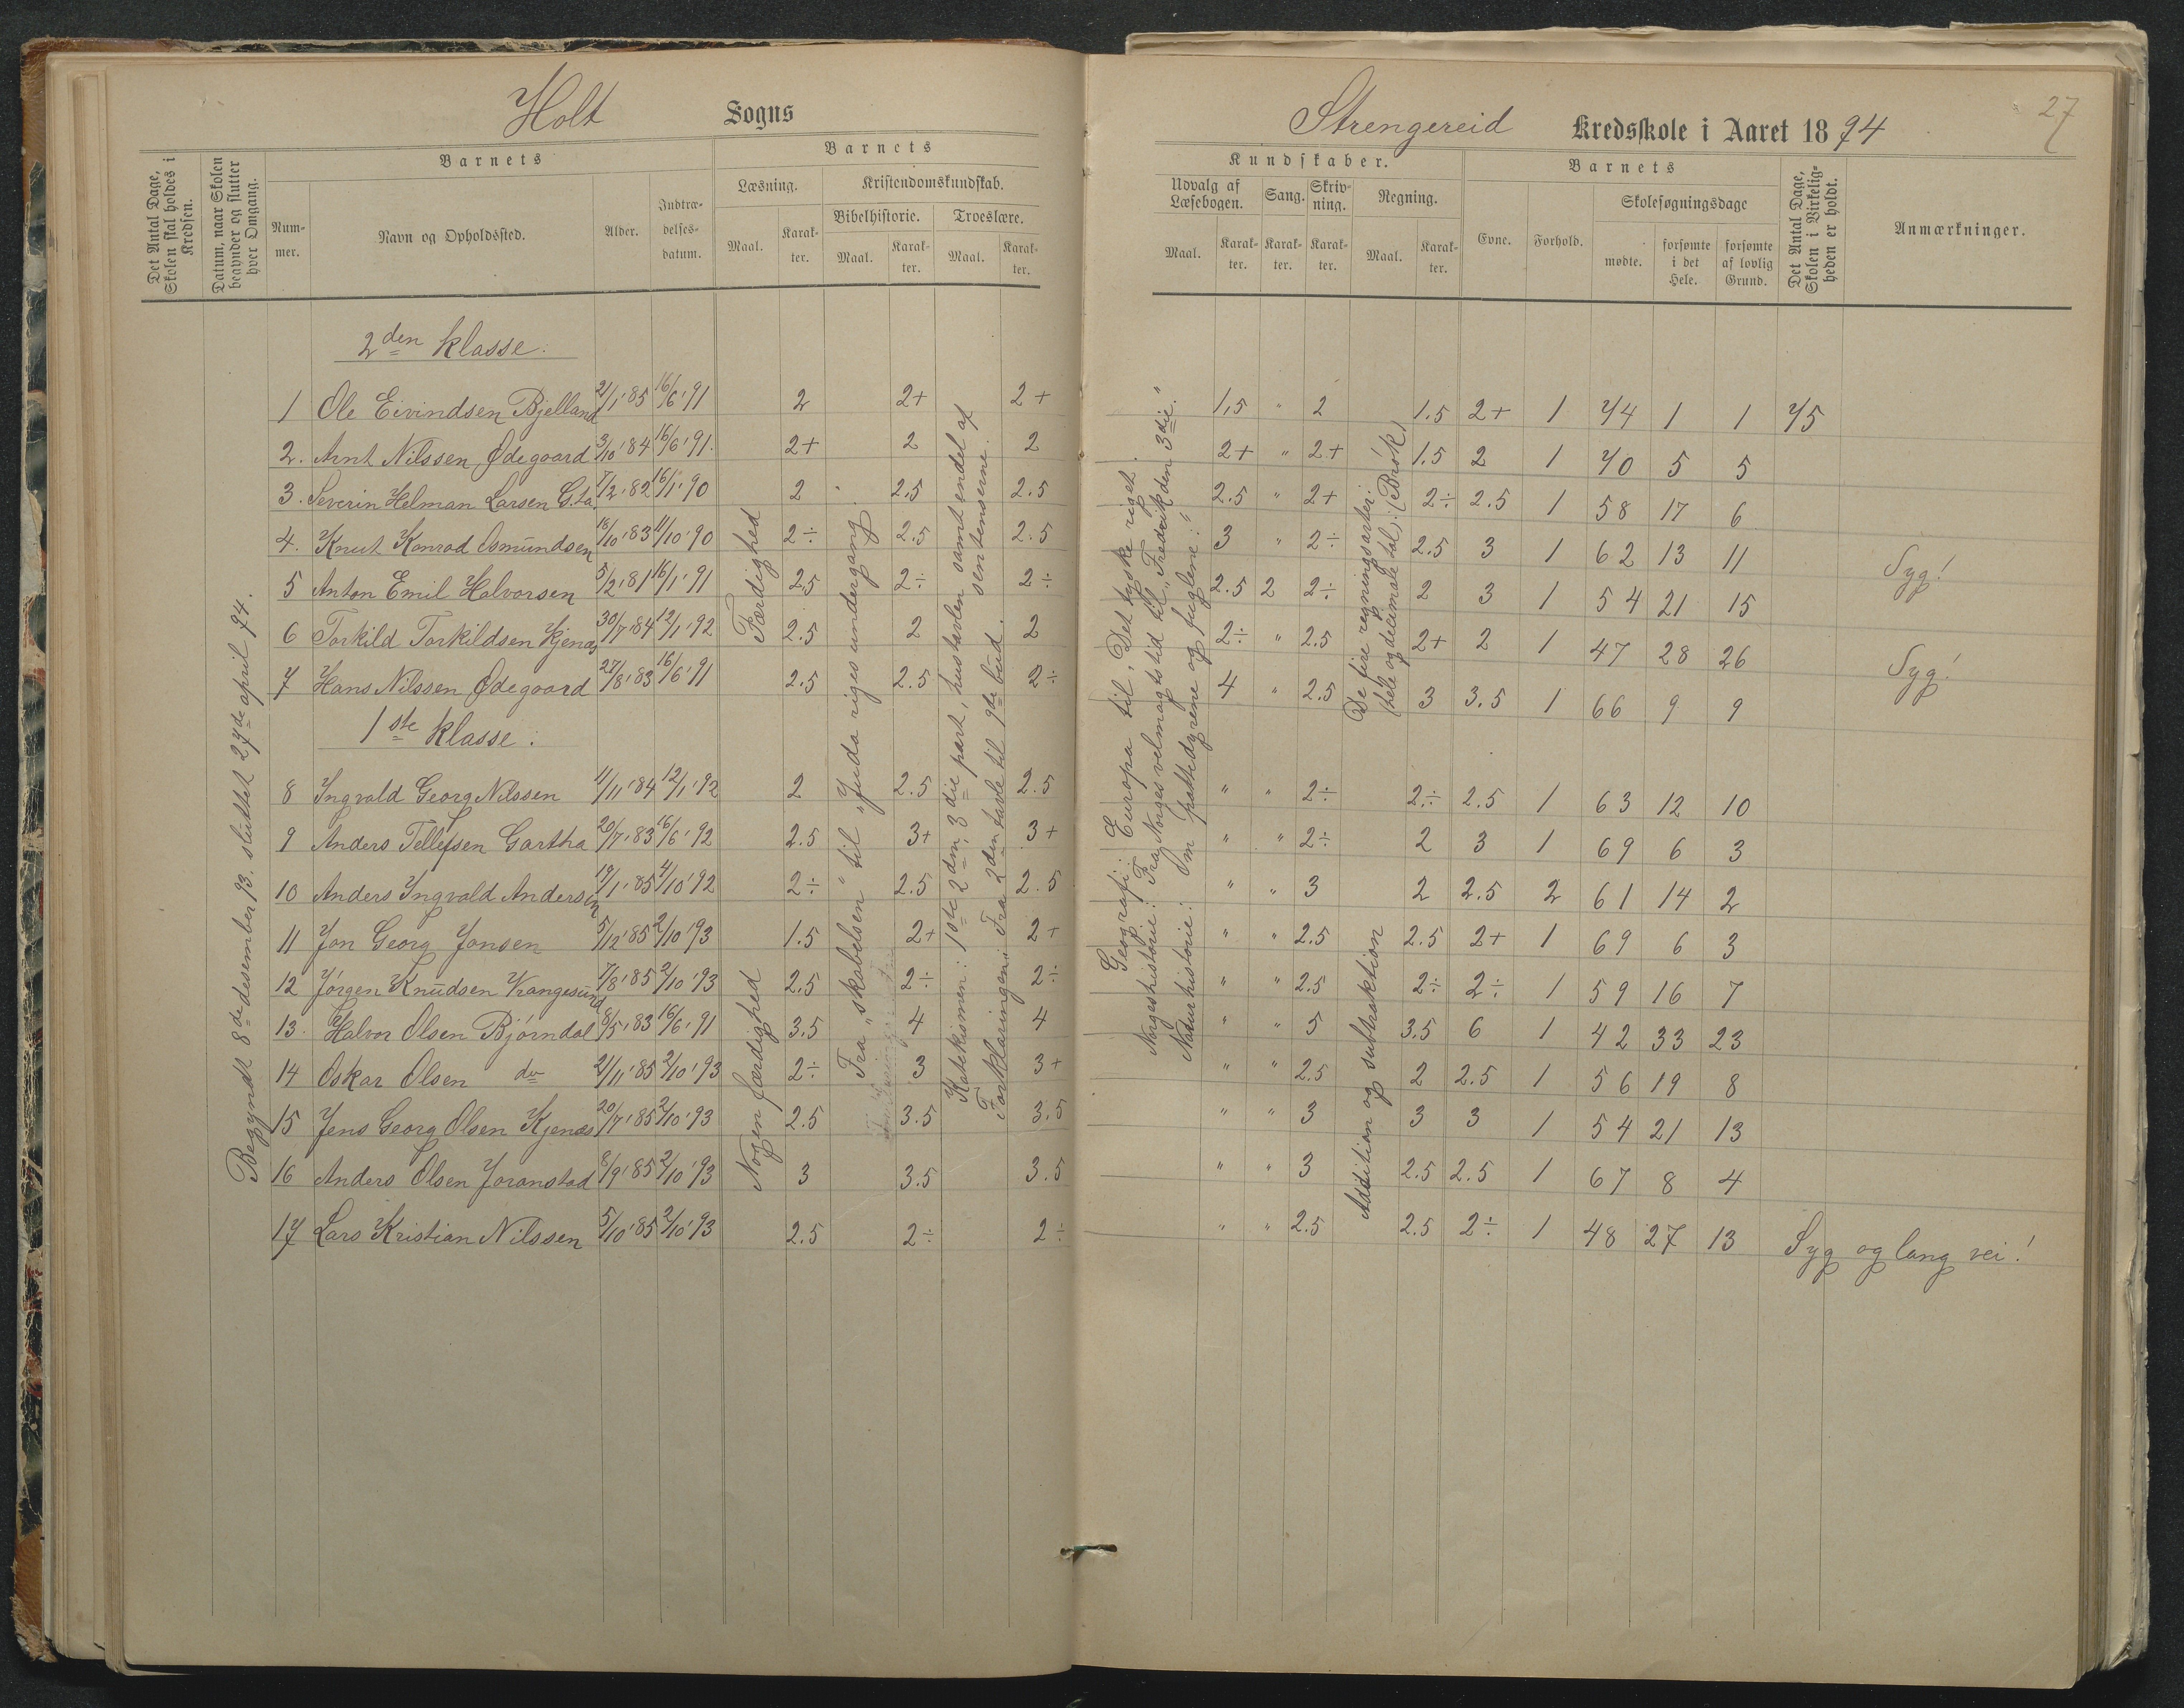 Holt Sogns
Strengereid Kredsskole i Aaret 1894
27
Det Antal Dage, Skolen skal holdes i Kredsen.
Datum, naar Skolen begynder og slutter hver Omgang.
Barnets
Num-mer.
Navn og Opholdssted.
Alder.
Indtræ-delses-datum.
Barnets
Læsning.
Maal.
Karak-ter.
Kristendomskundskab.
Bibelhistorie.
Maal.
Karak-ter.
Troeslære.
Maal.
Karak-ter.
Kundskaber.
Udvalg af Læsebogen.
Maal.
Karak-ter.
Sang.
Karak-ter.
Skriv-ning.
Karak-ter.
Regning.
Maal.
Karak-ter.
Barnets
Evne.
Forhold.
Skolesøgningsdage
mødte.
forsømte i det Hele.
forsømte af lovlig Grund.
Det Antal Dage, Skolen i Virkelig-heden er holdt.
Anmærkninger.
Begyndt 8de desember 93. sluttet 27de april 94.
2den klasse:
1 Ole Eivindsen Bjelland 21/1'85 16/6'91 2 2+ 2+ 1,5 " 2 1.5 2+ 1 74 1 1 75
2. Arnt Nilssen Ødegaard 3/10'84 16/6'91. 2+ 2 2 2+ " 2+ 1.5 2 1 70 5 5
3. Severin Helman Larsen G.ta. 7/2'82 16/1'90 2 2.5 2.5 2.5 " 2+ 2÷ 2.5 1 58 17 6
4. Knut Konrad Osmundsen 18/10'83 11/10'90 2÷ 2.5 2.5 3 " 2÷ 2.5 3 1 62 13 11
5 Anton Emil Halvorsen 5/2'81 16/1'91 2.5 2÷ 2÷ 2.5 2 2÷ 2 3 1 54 21 15 Syg!
6 Torkild Torkildsen Kjenæs 30/7'84 12/1'92 2.5 2 2 2÷ " 2.5 2+ 2 1 47 28 26
7 Hans Nilssen Ødegaard 27/8'83 16/6'91 2.5 2.5 2÷ 4 " 2.5 3 3.5 1 66 9 9 Syg!
1ste klasse:
8 Ingvald Georg Nilssen 11/11'84 12/1'92 2 2.5 2.5 " " 2÷ 2÷ 2.5 1 63 12 10
9 Anders Tellefsen Gartha 20/7'83 16/6'92 2.5 3+ 3+ " " 2÷ 2 3 1 69 6 3
10 Anders Ingvald Andersen 19/1'85 4/10'92 2÷ 2.5 2.5 " " 3 2 2.5 2 61 14 2
11 Jon Georg Jonsen 5/12'85 2/10'93 1.5 2+ 2+ " " 2.5 2.5 2+ 1 69 6 3
12 Jörgen Knudsen Vrangesund 7/8'85 2/10'93 2.5 2÷ 2÷ " " 2.5 2÷ 2÷ 1 59 16 7
13. Halvor Olsen Björndal 8/5'83 16/6'91 3.5 4 4 " " 5 3.5 6 1 42 33 23
14 Oskar Olsen do 21/11'85 2/10'93 2÷ 3 3+ " " 2.5 2 2.5 1 56 19 8
15 Jens Georg Olsen Kjenæs 20/7'85 2/10'93 2.5 3.5 3.5 " " 3 3 3 1 54 21 13
16 Anders Olsen Joranstad 8/9'85 2/10'93 3 3.5 3.5 " " 3 2.5 2.5 1 67 8 4
17 Lars Kristian Nilssen 5/10'85 2/10'93 2.5 2÷ 2÷ " " 2.5 2.5 2÷ 1 48 27 13 Syg og lang vei!
Færdighed
Nogen færdighed
Fra "skabelsen" til "Juda riges undergang."
Katekismen: 1ste 2den, 3die part, hustavlen samt endel af sentenserne.
Forklaringen: Fra 2den tavle til 9de bud.
Geografi: Europa til "Det tyske riget".
Norgeshistorie: Fra Norges velmagtstid til "Fredrik den 3die."
Naturhistorie: Om pattedyrene og fuglene:"
De fire regningsarter: (hele og decimale tal); (Brøk)
Addition og subtraktion